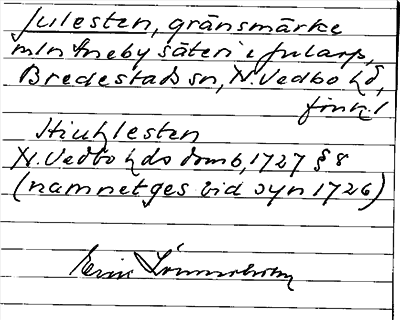 Julesten, gränsmärke
mln Aneby säteri o Jularp,
Bredestads sn, N. Vedbo hd,
Jönk. l
Hiuhlesten
N. Vedbo hds domb, 1727 § 8
(namnet ges vid syn 1726)